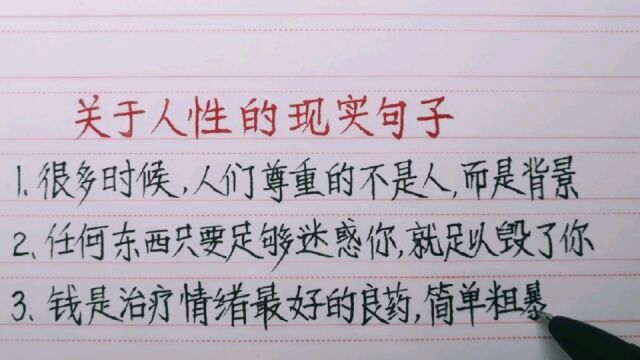 关于人性的现实句子
1.很多时候,人们尊重的不是人,而是背景
2.任何东西只要足够迷惑你,就足以毁了你
3.钱是治疗情绪最好的良药,简单粗暴